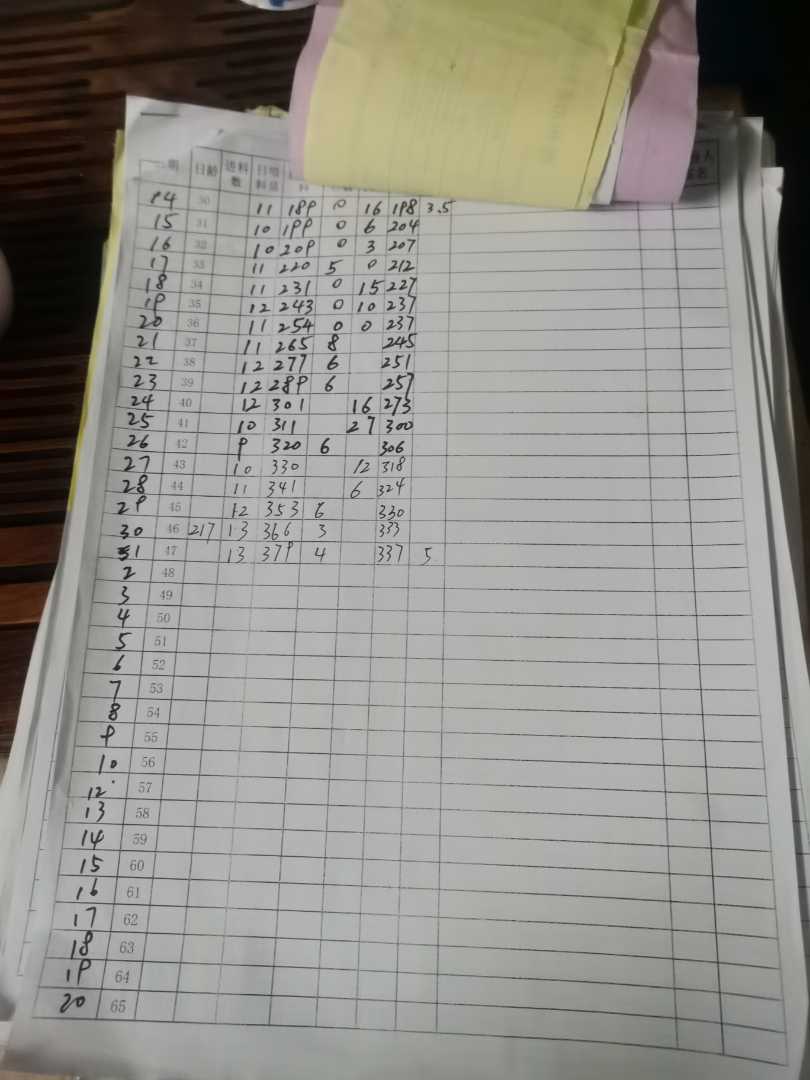 期 日龄 进料数 日喂料量 料 人 签名
14 30 11 189 0 16 198 3.5
15 31 10 199 0 6 204
16 32 10 209 0 3 207
17 33 11 220 5 0 212
18 34 11 231 0 15 227
19 35 12 243 0 10 237
20 36 11 254 0 0 237
21 37 11 265 8 245
22 38 12 277 6 251
23 39 12 289 6 257
24 40 12 301 16 273
25 41 10 311 27 300
26 42 9 320 6 306
27 43 10 330 12 318
28 44 11 341 6 324
29 45 12 353 6 330
30 46 217 13 366 3 333
31 47 13 379 4 337 5
2 48
3 49
4 50
5 51
6 52
7 53
8 54
9 55
10 56
12 57
13 58
14 59
15 60
16 61
17 62
18 63
19 64
20 65